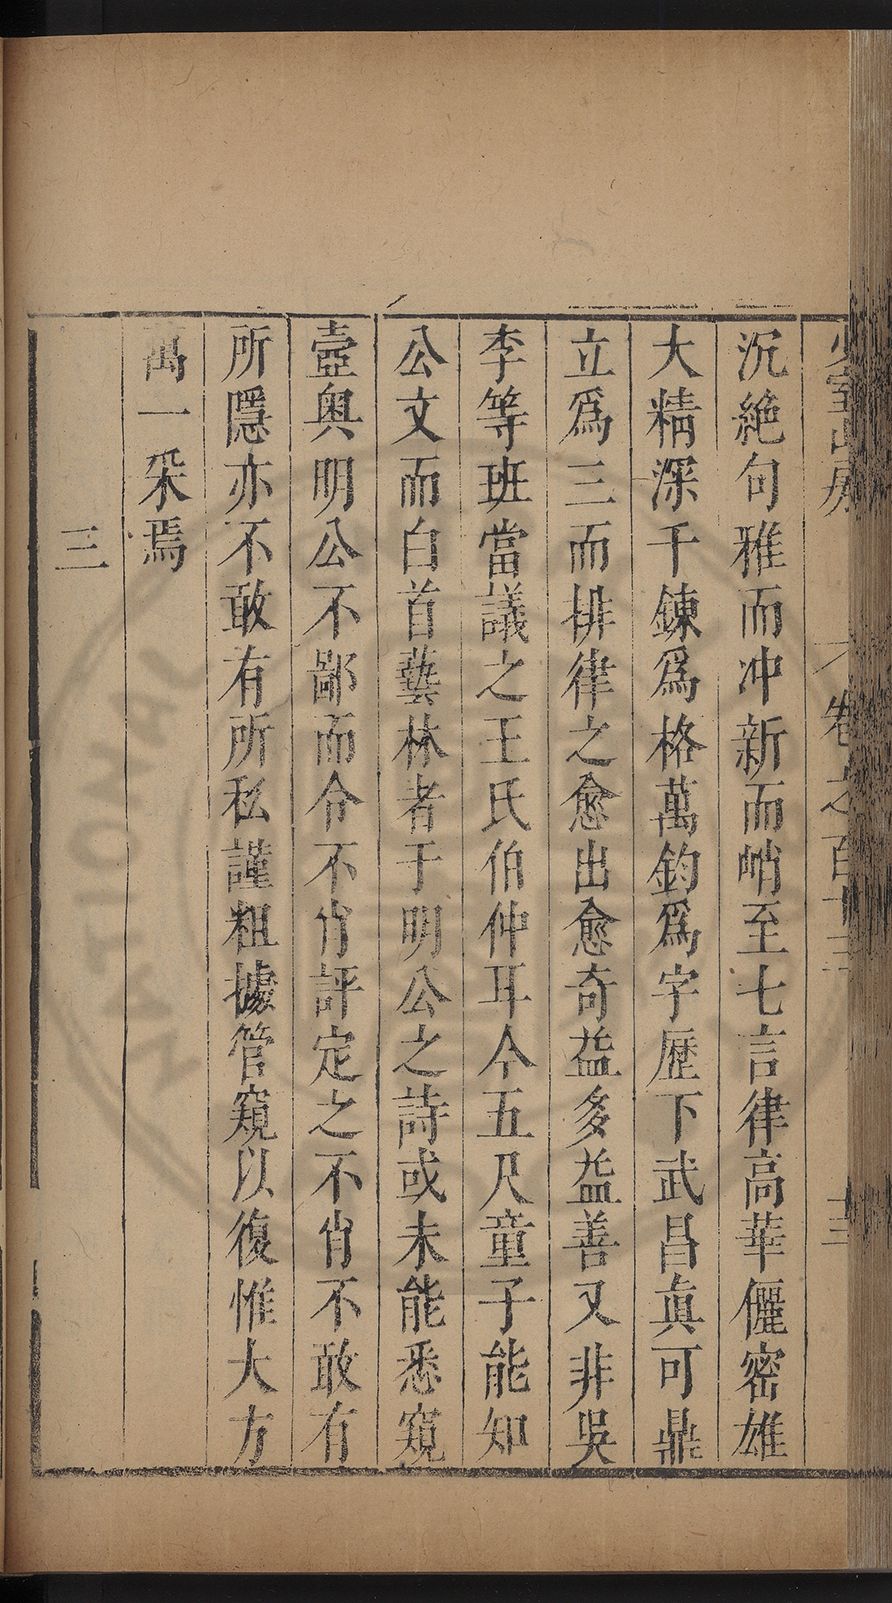 少室山房
卷之百十三
十三
沉絕句雅而冲新而峭至七言律高華儷密雄
大精深千鍊爲格萬鈞爲字歷下武昌眞可鼎
立爲三而排律之愈出愈奇益多益善又非吳
李等班當議之王氏伯仲耳今五尺童子能知
公文而白首藝林者于明公之詩或未能悉窺
壼奥明公不鄙而令不肖評定之不肖不敢有
所隱亦不敢有所私謹粗據管窺以復惟大方
萬一采焉
三